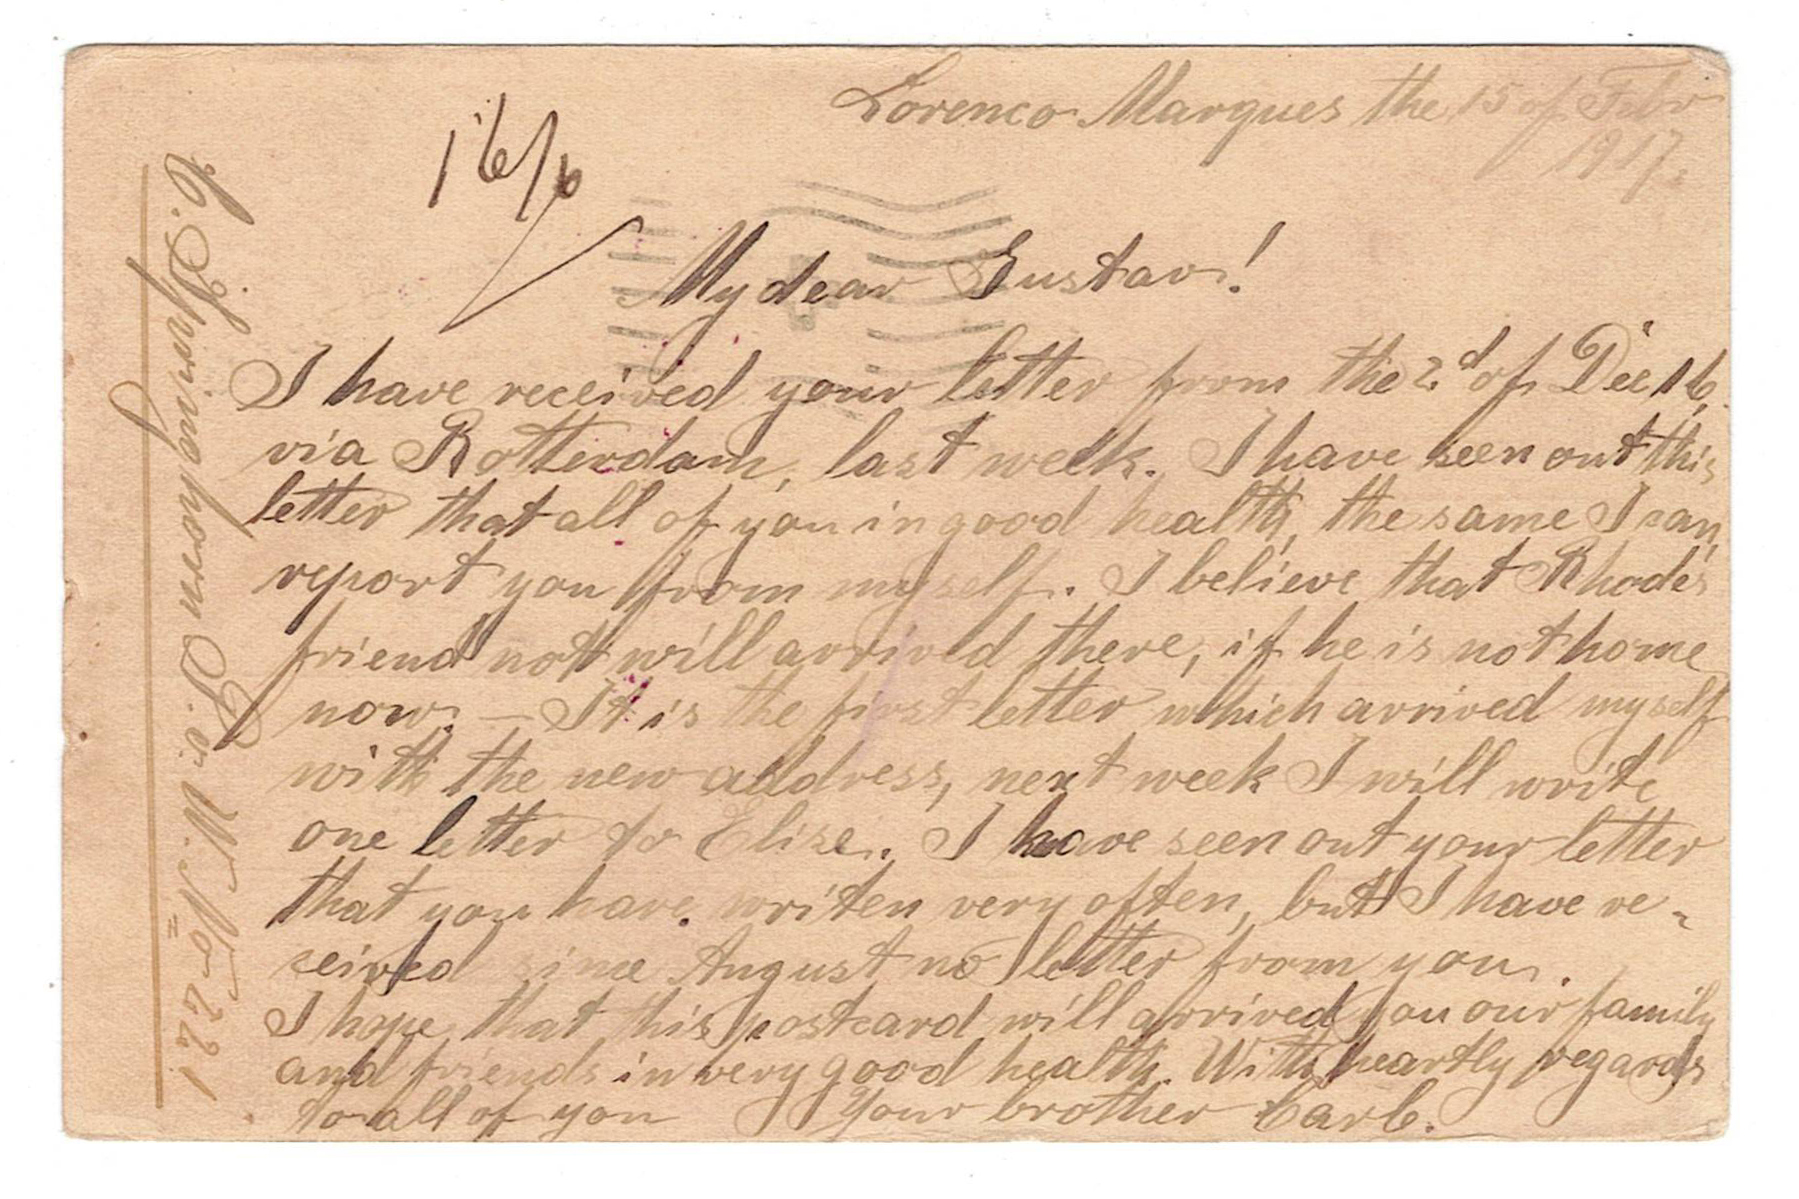 Lorenco Marques the 15 of Febr
1917.
16/6
My dear Gustav!
I have received your letter from the 2.d of Dec 16,
via Rotterdam, last week. I have seen out this
letter that all of you in good health, the same I can
report you from myself. I believe that Rhode's
friend not will arrived there, if he is not home
now. — It is the first letter which arrived myself
with the new address, next week I will write
one letter to Elise. I have seen out your letter
that you have writen very often, but I have re-
ceived since August no letter from you.
I hope that this postcard will arrived you our family
and friends in very good health. With heartly regards
to all of you Your brother Carl.
C. Springhorn P. o. W. No 221